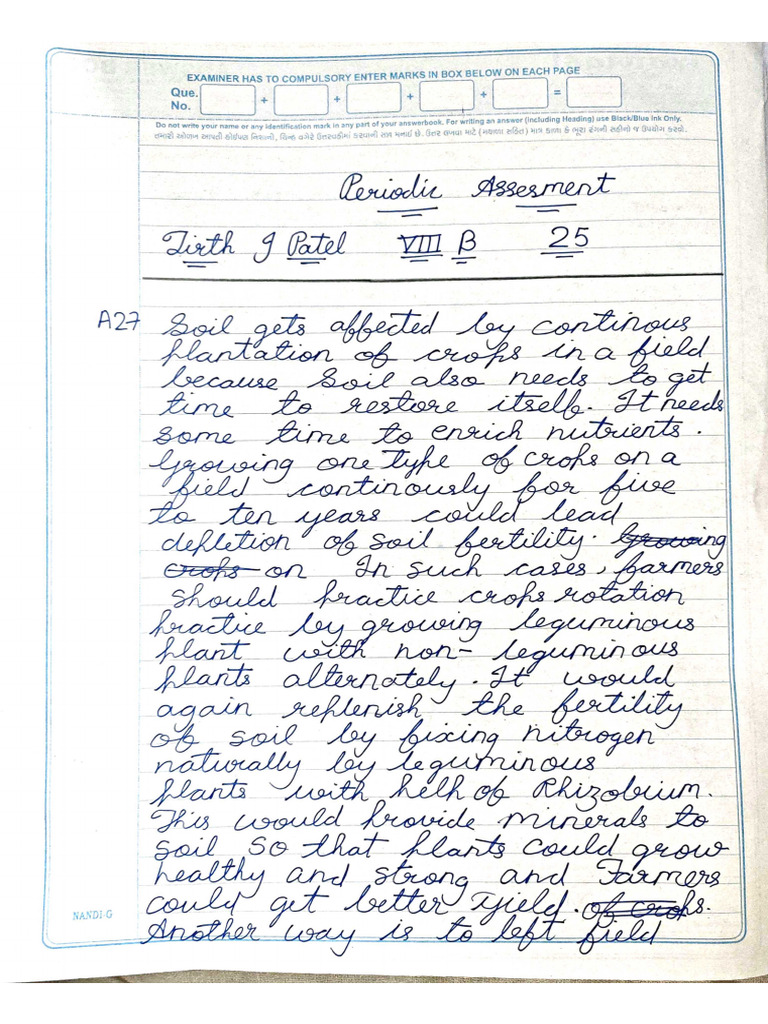 EXAMINER HAS TO COMPULSORY ENTER MARKS IN BOX BELOW ON EACH PAGE
Que.
No. + + + + =
Do not write your name or any identification mark in any part of your answerbook. For writing an answer (including Heading) use Black/Blue Ink Only.
તમારી ઓળખ આપતી કોઈપણ નિશાની, ચિન્હ વગેરે ઉત્તરવહીમાં કરવાની સખ્ત મનાઈ છે. ઉત્તર લખવા માટે (મથાળા સહિત) માત્ર કાળા કે ભૂરા રંગની સહીનો જ ઉપયોગ કરવો.
Periodic Assesment
Tirth J Patel VIII B 25
A27 Soil gets affected by continous
plantation of crops in a field
because soil also needs to get
time to restore itself. It needs
some time to enrich nutrients.
Growing one type of crops on a
field continously for five
to ten years could lead
depletion of soil fertility. Growing
crops on In such cases, farmers
should practice crops rotation
practice by growing leguminous
plant with non-leguminous
plants alternately. It would
again replenish the fertility
of soil by fixing nitrogen
naturally by leguminous
plants with help of Rhizobium.
This would provide minerals to
soil so that plants could grow
healthy and strong and Farmers
could get better yield. of crops.
Another way is to left field
NANDI-G